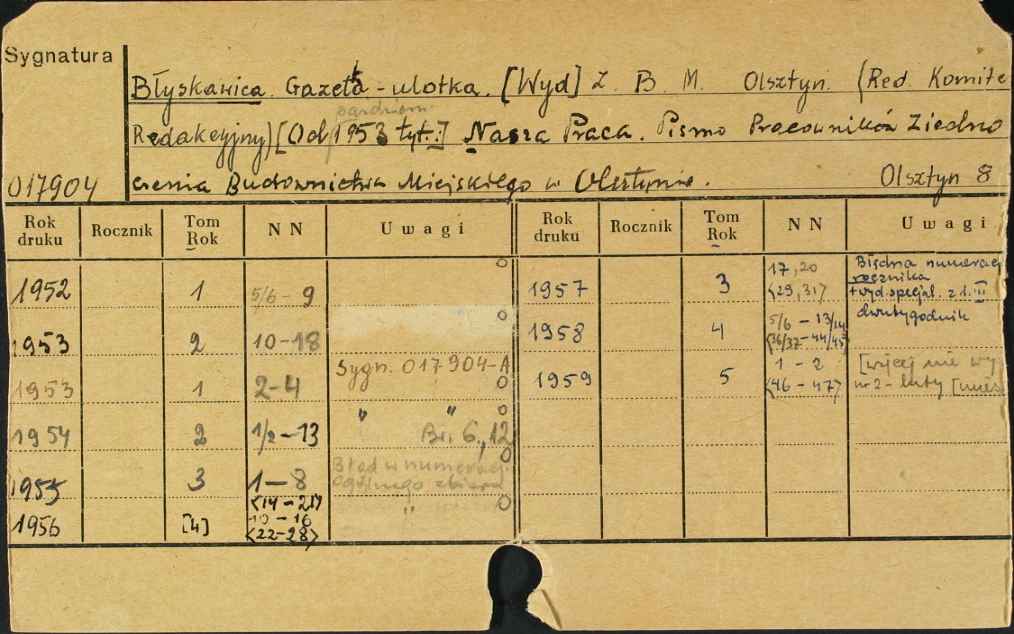 Sygnatura
Błyskawica. Gazeta - ulotka. [Wyd] Z. B. M. Olsztyn. (Red. Komite
październ.
Redakcyjny) [Od 1953 tyt.:] Nasza Praca. Pismo Pracowników Zjedno
017904 czenia Budownictwa Miejskiego w Olsztynie. Olsztyn 8
Rok druku Rocznik Tom Rok NN Uwagi Rok druku Rocznik Tom Rok NN Uwagi
1952 1 5/6 - 9 o
1953 2 10-18 o
1953 1 2-4 Sygn. 017904-A o
1954 2 1/2 - 13 " " o Br. 6, 12
1955 3 1-8 <14-21> o Błąd w numeracji ogólnego zbioru
1956 [4] 10-16 <22-28> " o
1957 3 17, 20 <29, 31> Błędna numeracj rocznika + wyd. specjal. z 1. II
1958 4 5/6 - 13/14 <36/37-44/45> dwutygodnik
1959 5 1-2 <46-47> [więcej nie wy nr 2 - luty [mies